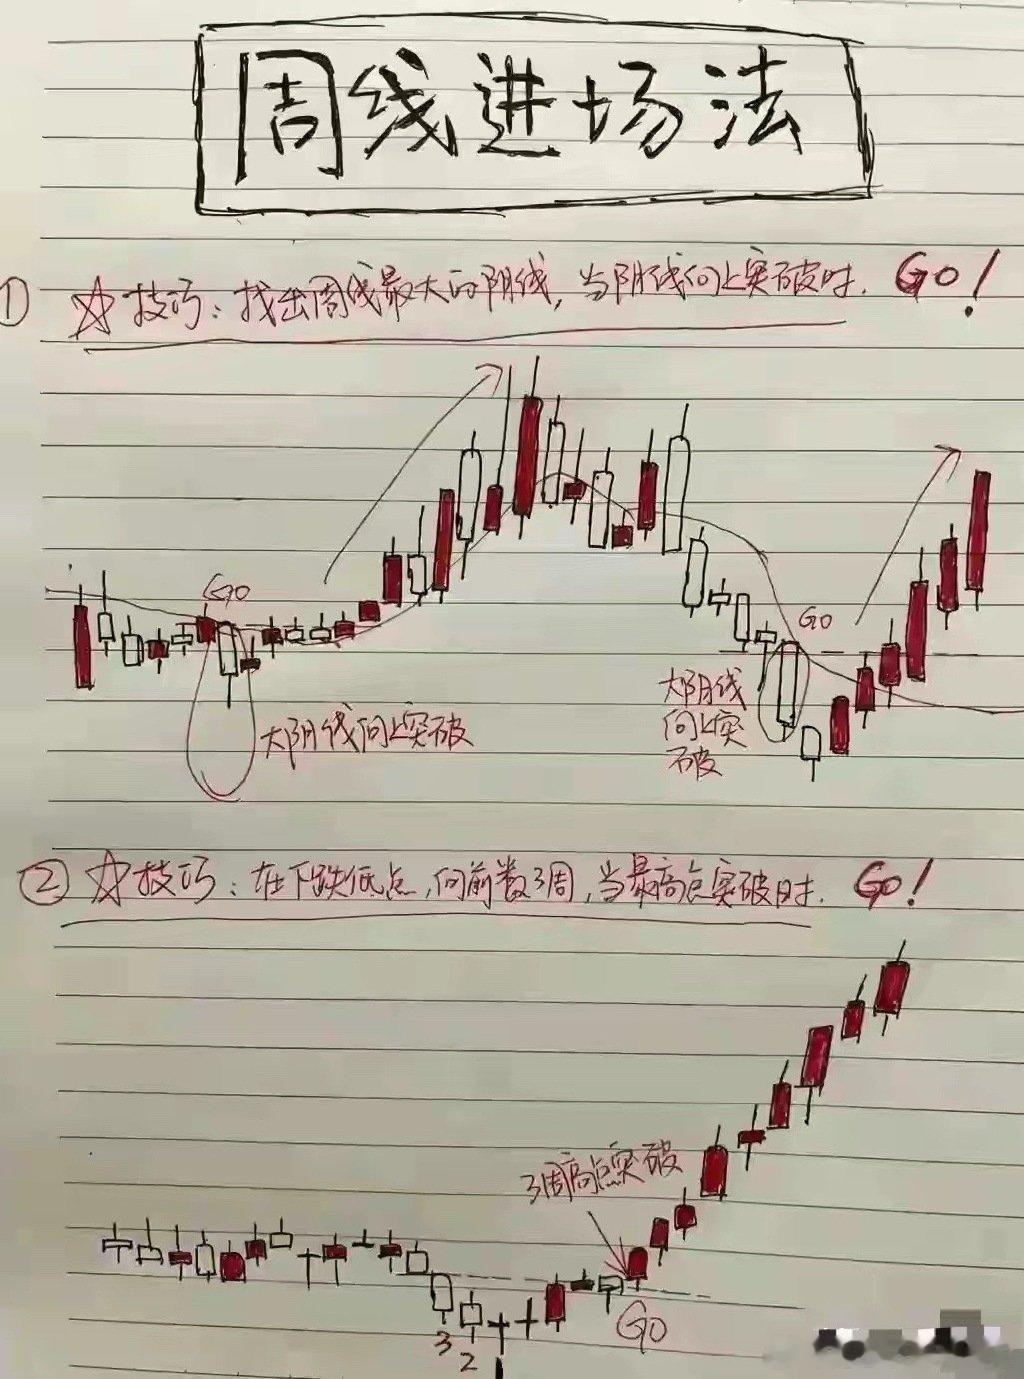 周线进场法
① ☆技巧：找出周线最大的阴线，当阴线向上突破时. GO！
GO
大阴线向上突破
GO
大阴线
向上突
破
② ☆技巧：在下跌低点，向前数3周，当最高点突破时. GO！
3周高点突破
GO
3
2
1